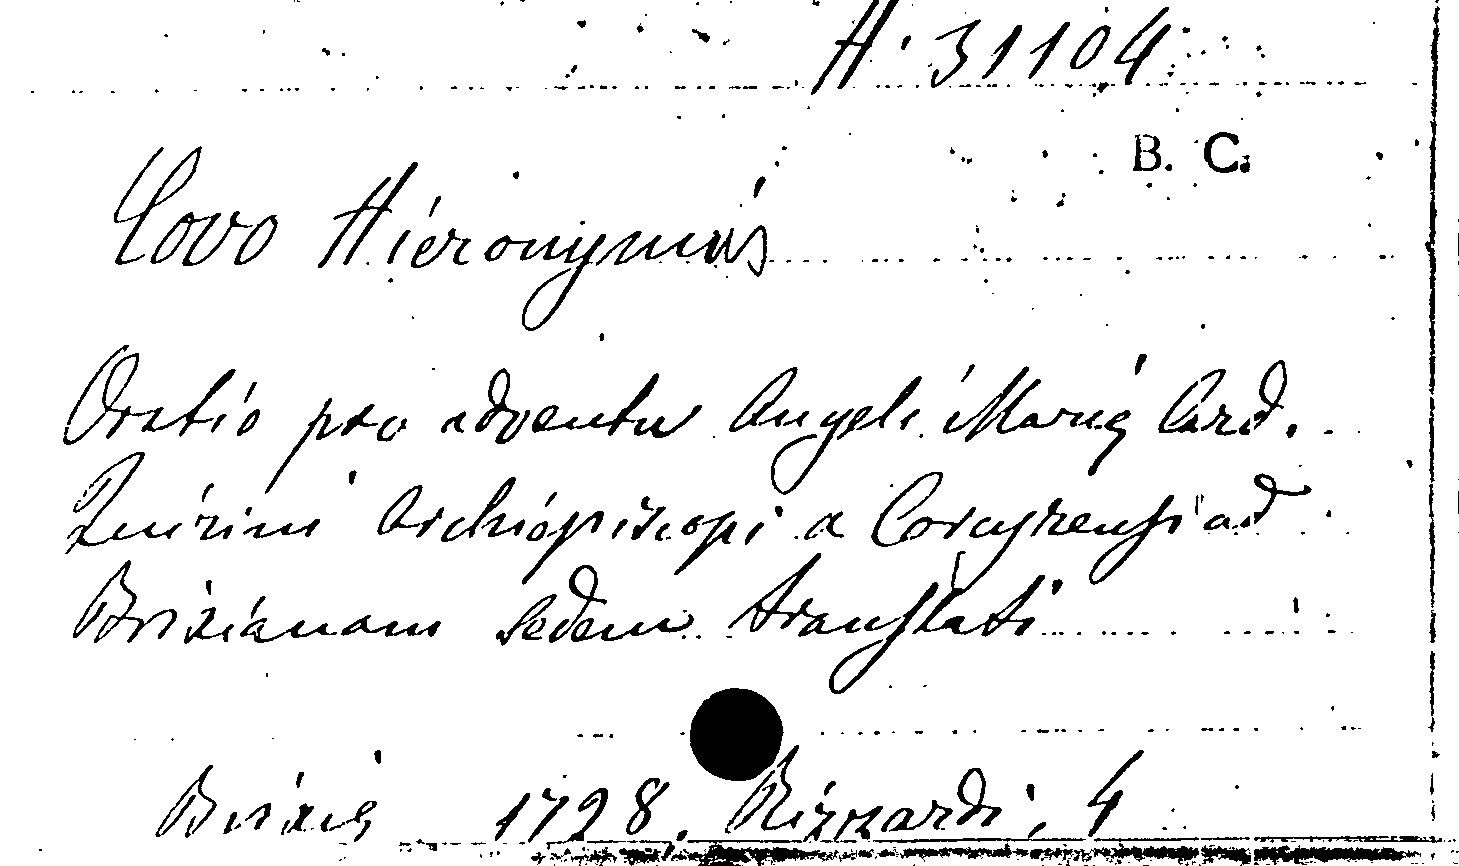 H. 31104
B. C.
Covo Hieronymus
Oratio pro adventu Angeli Marię Card.
Quirini Archiepiscopi a Corcyrensi ad
Brixianam sedem translati
Brixię 1728, Rizzardi, 4